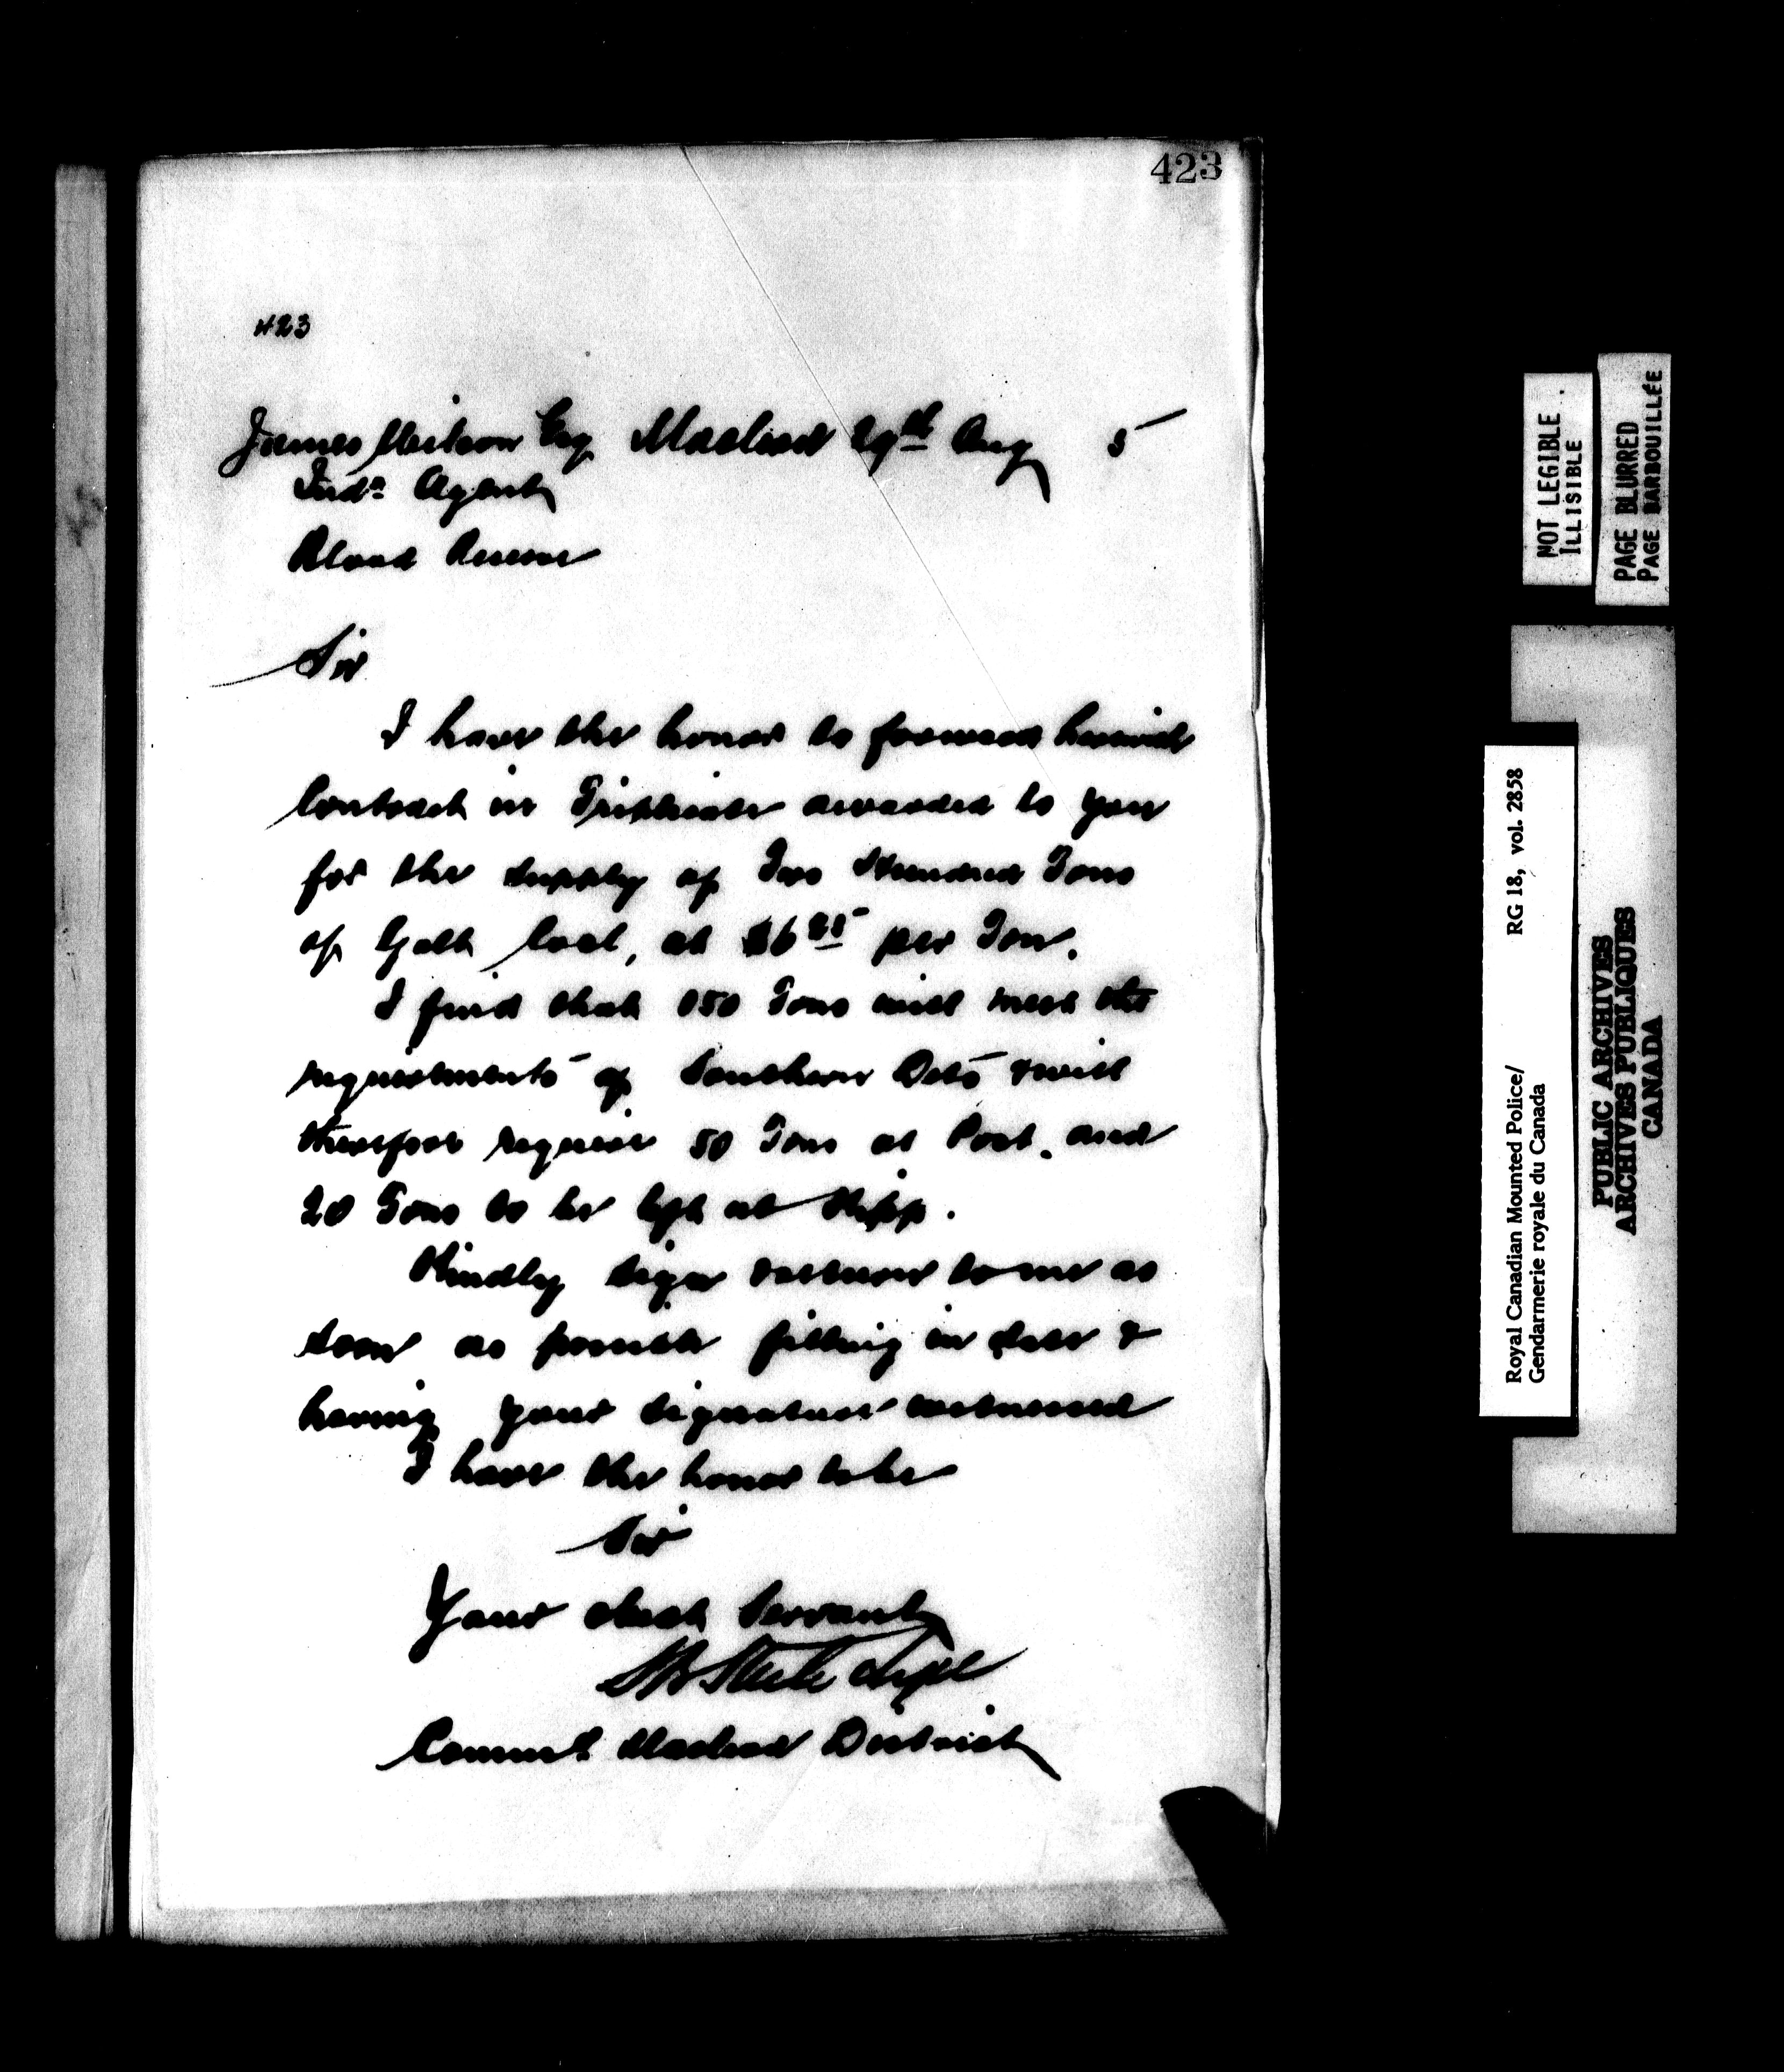 423
423
James Wilson Esq Macleod 29th Aug 5
Indn Agent
Blood Reserve
Sir
I have the honor to forward herewith
Contract in Triplicate awarded to you
for the supply of Two Hundred Tons
of Galt Coal, at $6 25 per Ton.
I find that 150 Tons will meet the
requirements of Southern Dets & will
therefore require 50 Tons at Post. and
20 Tons to be left at Kipp.
Kindly sign & return to me as
soon as possible filling in date &
having your signature witnessed
I have the honor to be
Sir
Your obedt Servant
SB Steele Supt
Commg Macleod District
NOT LEGIBLE
ILLISIBLE
PAGE BLURRED
PAGE BARBOUILLÉE
Royal Canadian Mounted Police/ RG 18, vol. 2858
Gendarmerie royale du Canada
PUBLIC ARCHIVES
ARCHIVES PUBLIQUES
CANADA